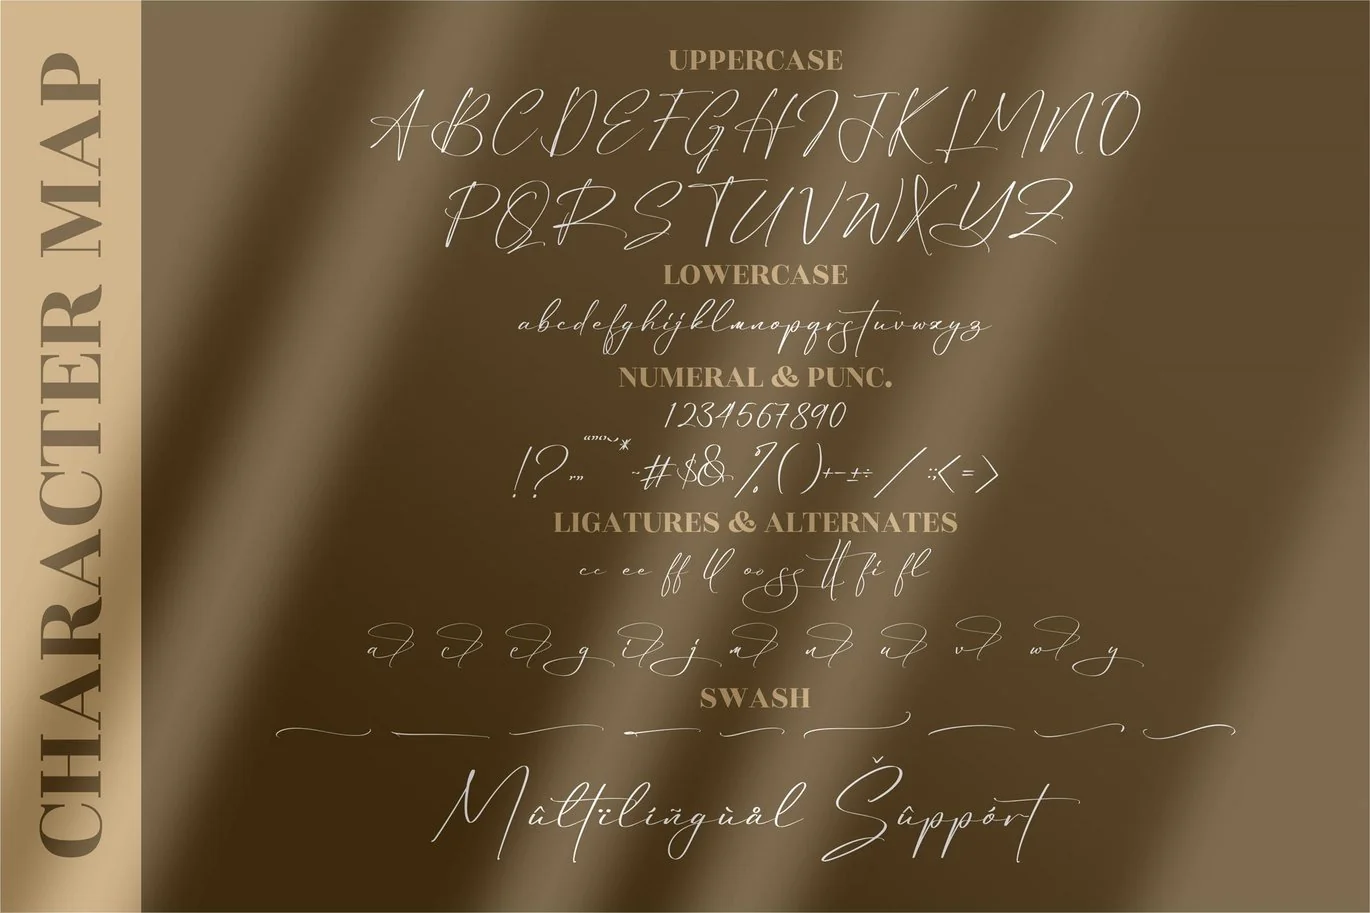 CHARACTER MAP
UPPERCASE
ABCDEFGHIJKLMNO
PQRSTUVWXYZ
LOWERCASE
abcdefghijklmnopqrstuvwxyz
NUMERAL & PUNC.
1234567890
!? * ~ # $ & % ( ) + - ± ÷ / : ; < = >
LIGATURES & ALTERNATES
cc ee ff ll oo ss tt fi fl
a c e g i j m n u v w y
SWASH
Mûltïlíñgùål Šûppórt